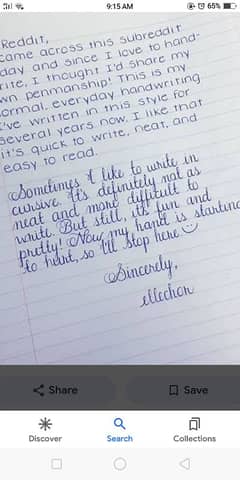 9:15 AM
65%
Reddit,
came across this subreddit
day and since I love to hand-
rite, I thought I'd share my
wn penmanship! This is my
ormal, everyday handwriting
I've written in this style for
several years now. I like that
it's quick to write, neat, and
easy to read.
Sometimes I like to write in
cursive. It's definitely not as
neat and more difficult to
write. But still, it's fun and
pretty! Now my hand is starting
to hurt, so I'll stop here
Sincerely,
ellechon
Share
Save
Discover
Search
Collections